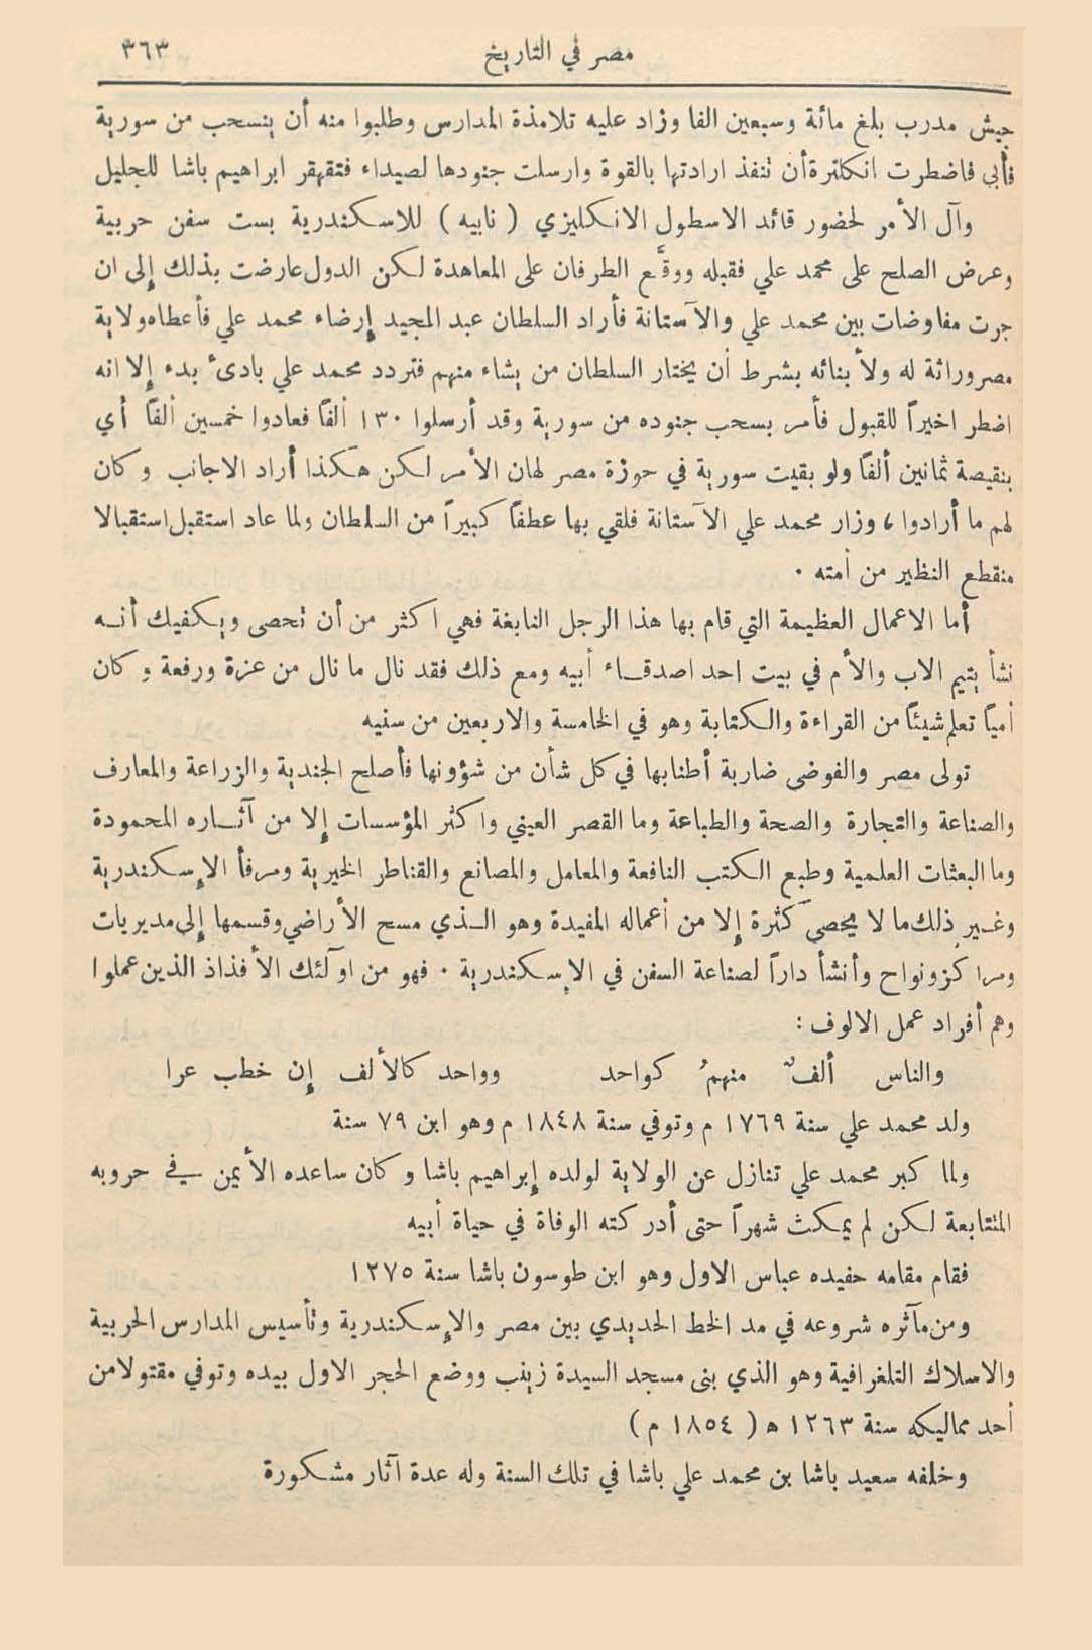 مصر في التاريخ ٣٦٣
جيش مدرب بلغ مائة وسبعين الفا وزاد عليه تلامذة المدارس وطلبوا منه أن ينسحب من سورية
فأبى فاضطرت انكلترة أن تنفذ ارادتها بالقوة وارسلت جنودها لصيداء فتقهقر ابراهيم باشا للجليل
وآل الأمر لحضور قائد الاسطول الانكليزي ( نابيه ) للاسكندرية بست سفن حربية
وعرض الصلح على محمد علي فقبله ووقَّع الطرفان على المعاهدة لكن الدول عارضت بذلك إلى ان
جرت مفاوضات بين محمد علي والآستانة فأراد السلطان عبد المجيد إرضاء محمد علي فأعطاه ولاية
مصر وراثة له ولأبنائه بشرط أن يختار السلطان من يشاء منهم فتردد محمد علي بادئ بدء إلا انه
اضطر اخيراً للقبول فأمر بسحب جنوده من سورية وقد أرسلوا ١٣٠ ألفاً فعادوا خمسين ألفاً أي
بنقيصة ثمانين ألفاً ولو بقيت سورية في حوزة مصر لهان الأمر لكن هكذا أراد الاجانب وكان
لهم ما أرادوا ، وزار محمد علي الآستانة فلقي بها عطفاً كبيراً من السلطان ولما عاد استقبل استقبالا
منقطع النظير من أمته .
أما الاعمال العظيمة التي قام بها هذا الرجل النابغة فهي اكثر من أن تحصى ويكفيك أنه
نشأ يتيم الاب والأم في بيت احد اصدقاء أبيه ومع ذلك فقد نال ما نال من عزة ورفعة وكان
أمياً تعلم شيئاً من القراءة والكتابة وهو في الخامسة والاربعين من سنيه
تولى مصر والفوضى ضاربة أطنابها في كل شأن من شؤونها فأصلح الجندية والزراعة والمعارف
والصناعة والتجارة والصحة والطباعة وما القصر العيني واكثر المؤسسات إلا من آثاره المحمودة
وما البعثات العلمية وطبع الكتب النافعة والمعامل والمصانع والقناطر الخيرية ومرفأ الإسكندرية
وغير ذلك ما لا يحصى كثرة إلا من أعماله المفيدة وهو الذي مسح الأراضي وقسمها إلى مديريات
ومراكز ونواح وأنشأ داراً لصناعة السفن في الإسكندرية . فهو من اولئك الأفذاذ الذين عملوا
وهم أفراد عمل الالوف :
والناس ألفٌ منهمُ كواحد وواحد كالألف إن خطب عرا
ولد محمد علي سنة ١٧٦٩ م وتوفي سنة ١٨٤٨ م وهو ابن ٧٩ سنة
ولما كبر محمد علي تنازل عن الولاية لولده إبراهيم باشا وكان ساعده الأيمن في حروبه
المتتابعة لكن لم يمكث شهراً حتى أدركته الوفاة في حياة أبيه
فقام مقامه حفيده عباس الاول وهو ابن طوسون باشا سنة ١٢٧٥
ومن مآثره شروعه في مد الخط الحديدي بين مصر والإسكندرية وتأسيس المدارس الحربية
والاسلاك التلغرافية وهو الذي بنى مسجد السيدة زينب ووضع الحجر الاول بيده وتوفي مقتولا من
أحد مماليكه سنة ١٢٦٣ ه ( ١٨٥٤ م )
وخلفه سعيد باشا بن محمد علي باشا في تلك السنة وله عدة آثار مشكورة